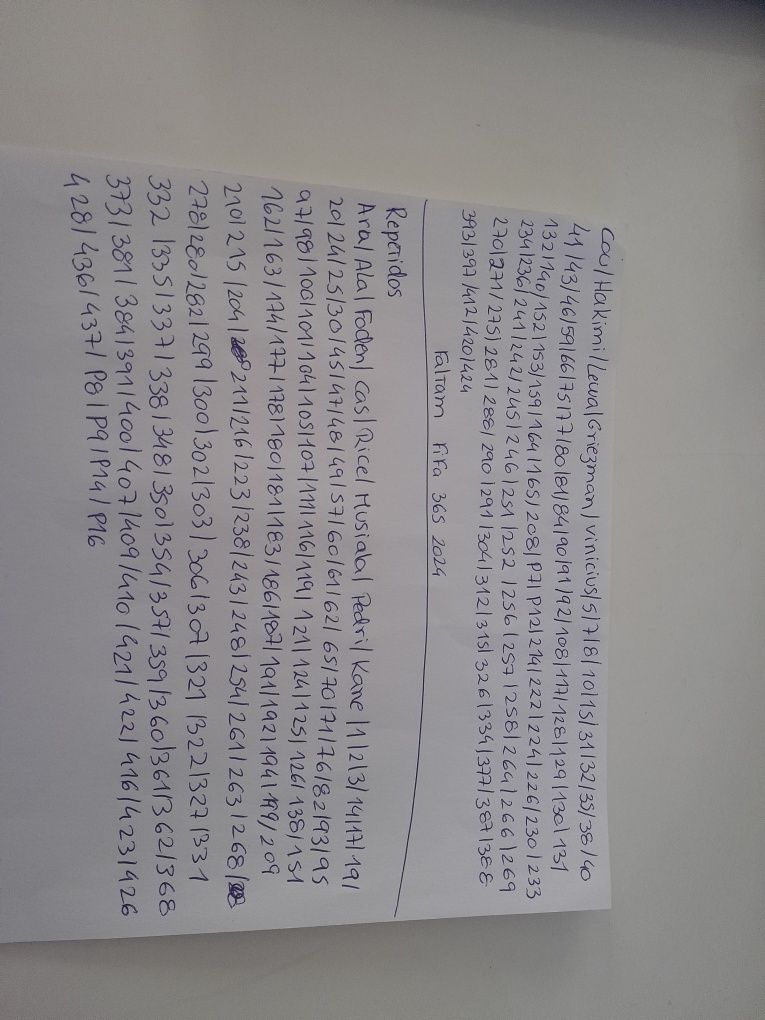 Cou/Hakimi/Lewa/Griezman/vinicius/5/7/8/10/15/31/32/35/38/40
41/43/46/59/66/75/77/80/81/84/90/91/92/108/117/128/129/130/131
132/140/152/153/159/164/165/208/P7/P12/214/222/224/226/230/233
234/236/241/242/245/246/251/252/256/257/258/264/266/269
270/271/275/281/288/290/291/304/312/315/326/334/377/387/388
393/397/412/420/424
Faltam Fifa 365 2024
Repetidos
Ara/Ala/Foden/Cas/Rice/Musiala/Pedri/Kane/1/2/3/14/17/19/
20/24/25/30/45/47/48/49/57/60/61/62/65/70/71/76/82/93/95
97/98/100/101/104/105/107/111/116/119/121/124/125/126/138/151
162/163/174/177/178/180/181/183/186/187/191/192/194/199/209
210/215/204/211/216/223/238/243/248/254/261/263/268/
278/280/282/299/300/302/303/306/307/321/322/327/331
332/335/337/338/348/350/354/357/359/360/361/362/368
373/381/384/391/400/407/409/410/421/422/416/423/426
428/436/437/P8/P9/P14/P16